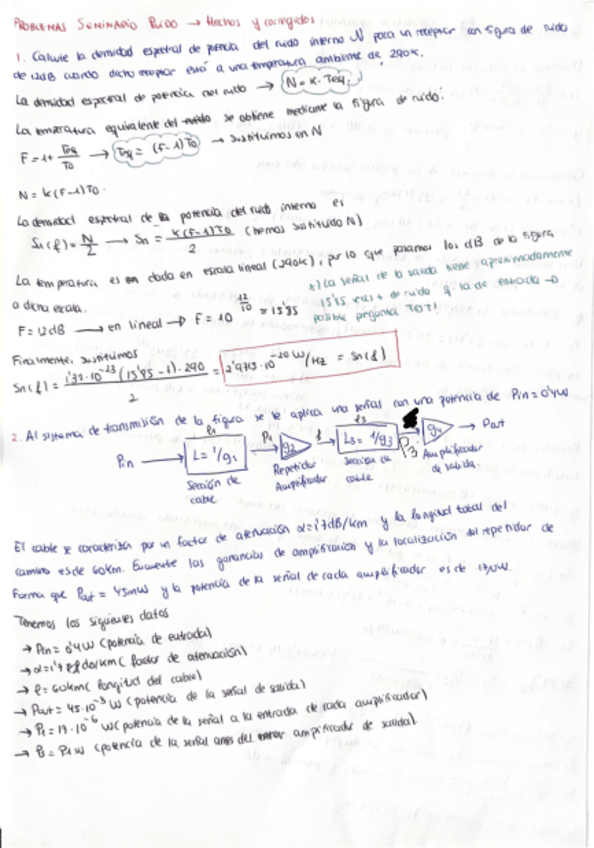 PROBLEMAS SEMINARIO RUIDO → Hechos y corregidos
1. Calcule la densidad espectral de potencia del ruido interno N para un receptor con figura de ruido
de 12dB cuando dicho receptor está a una temperatura ambiente de 290K.
La densidad espectral de potencia del ruido → N = K · Teq.
La temperatura equivalente del ruido se obtiene mediante la figura de ruido:
F = 1 + Teq/T0 → Teq = (F-1)T0 → sustituimos en N
N = K(F-1)T0.
La densidad espectral de la potencia del ruido interno es
Sn(f) = N/2 → Sn = K(F-1)T0/2 (hemos sustituido N)
La temperatura es en dada en escala lineal (290K), por lo que pasamos los dB de la figura
a dicha escala.
F = 12dB → en lineal → F = 10^(12/10) ≈ 15'85
*) La señal de la salida tiene aproximadamente
15'85 veces + de ruido q la de entrada →
posible pregunta TEST!
Finalmente, sustituimos
Sn(f) = 1'38·10^-23 (15'85 - 1)·290 / 2 = 2'9713·10^-20 W/Hz = Sn(f)
2. Al sistema de transmisión de la figura se le aplica una señal con una potencia de Pin = 0'4W
Pin → L = 1/g1 → P1 g2 → L3 = 1/g3 → P3 g4 → Pout
Sección de cable
Repetidor Amplificador
Sección de cable
Amplificador de salida
El cable se caracteriza por un factor de atenuación α = 1'7dB/km y la longitud total del
camino es de 60km. Encuentre las ganancias de amplificación y la localización del repetidor de
forma que Pout = 45mW y la potencia de la señal de cada amplificador es de
Tenemos los siguientes datos
→ Pin = 0'4W (potencia de entrada)
→ α = 1'7 dB/km (factor de atenuación)
→ l = 60km (longitud del cable)
→ Pout = 45·10^-3 W (potencia de la señal de salida)
→ P1 = ·10^-6 W (potencia de la señal a la entrada de cada amplificador)
→ P3 = P1 W (potencia de la señal antes del amplificador de salida).